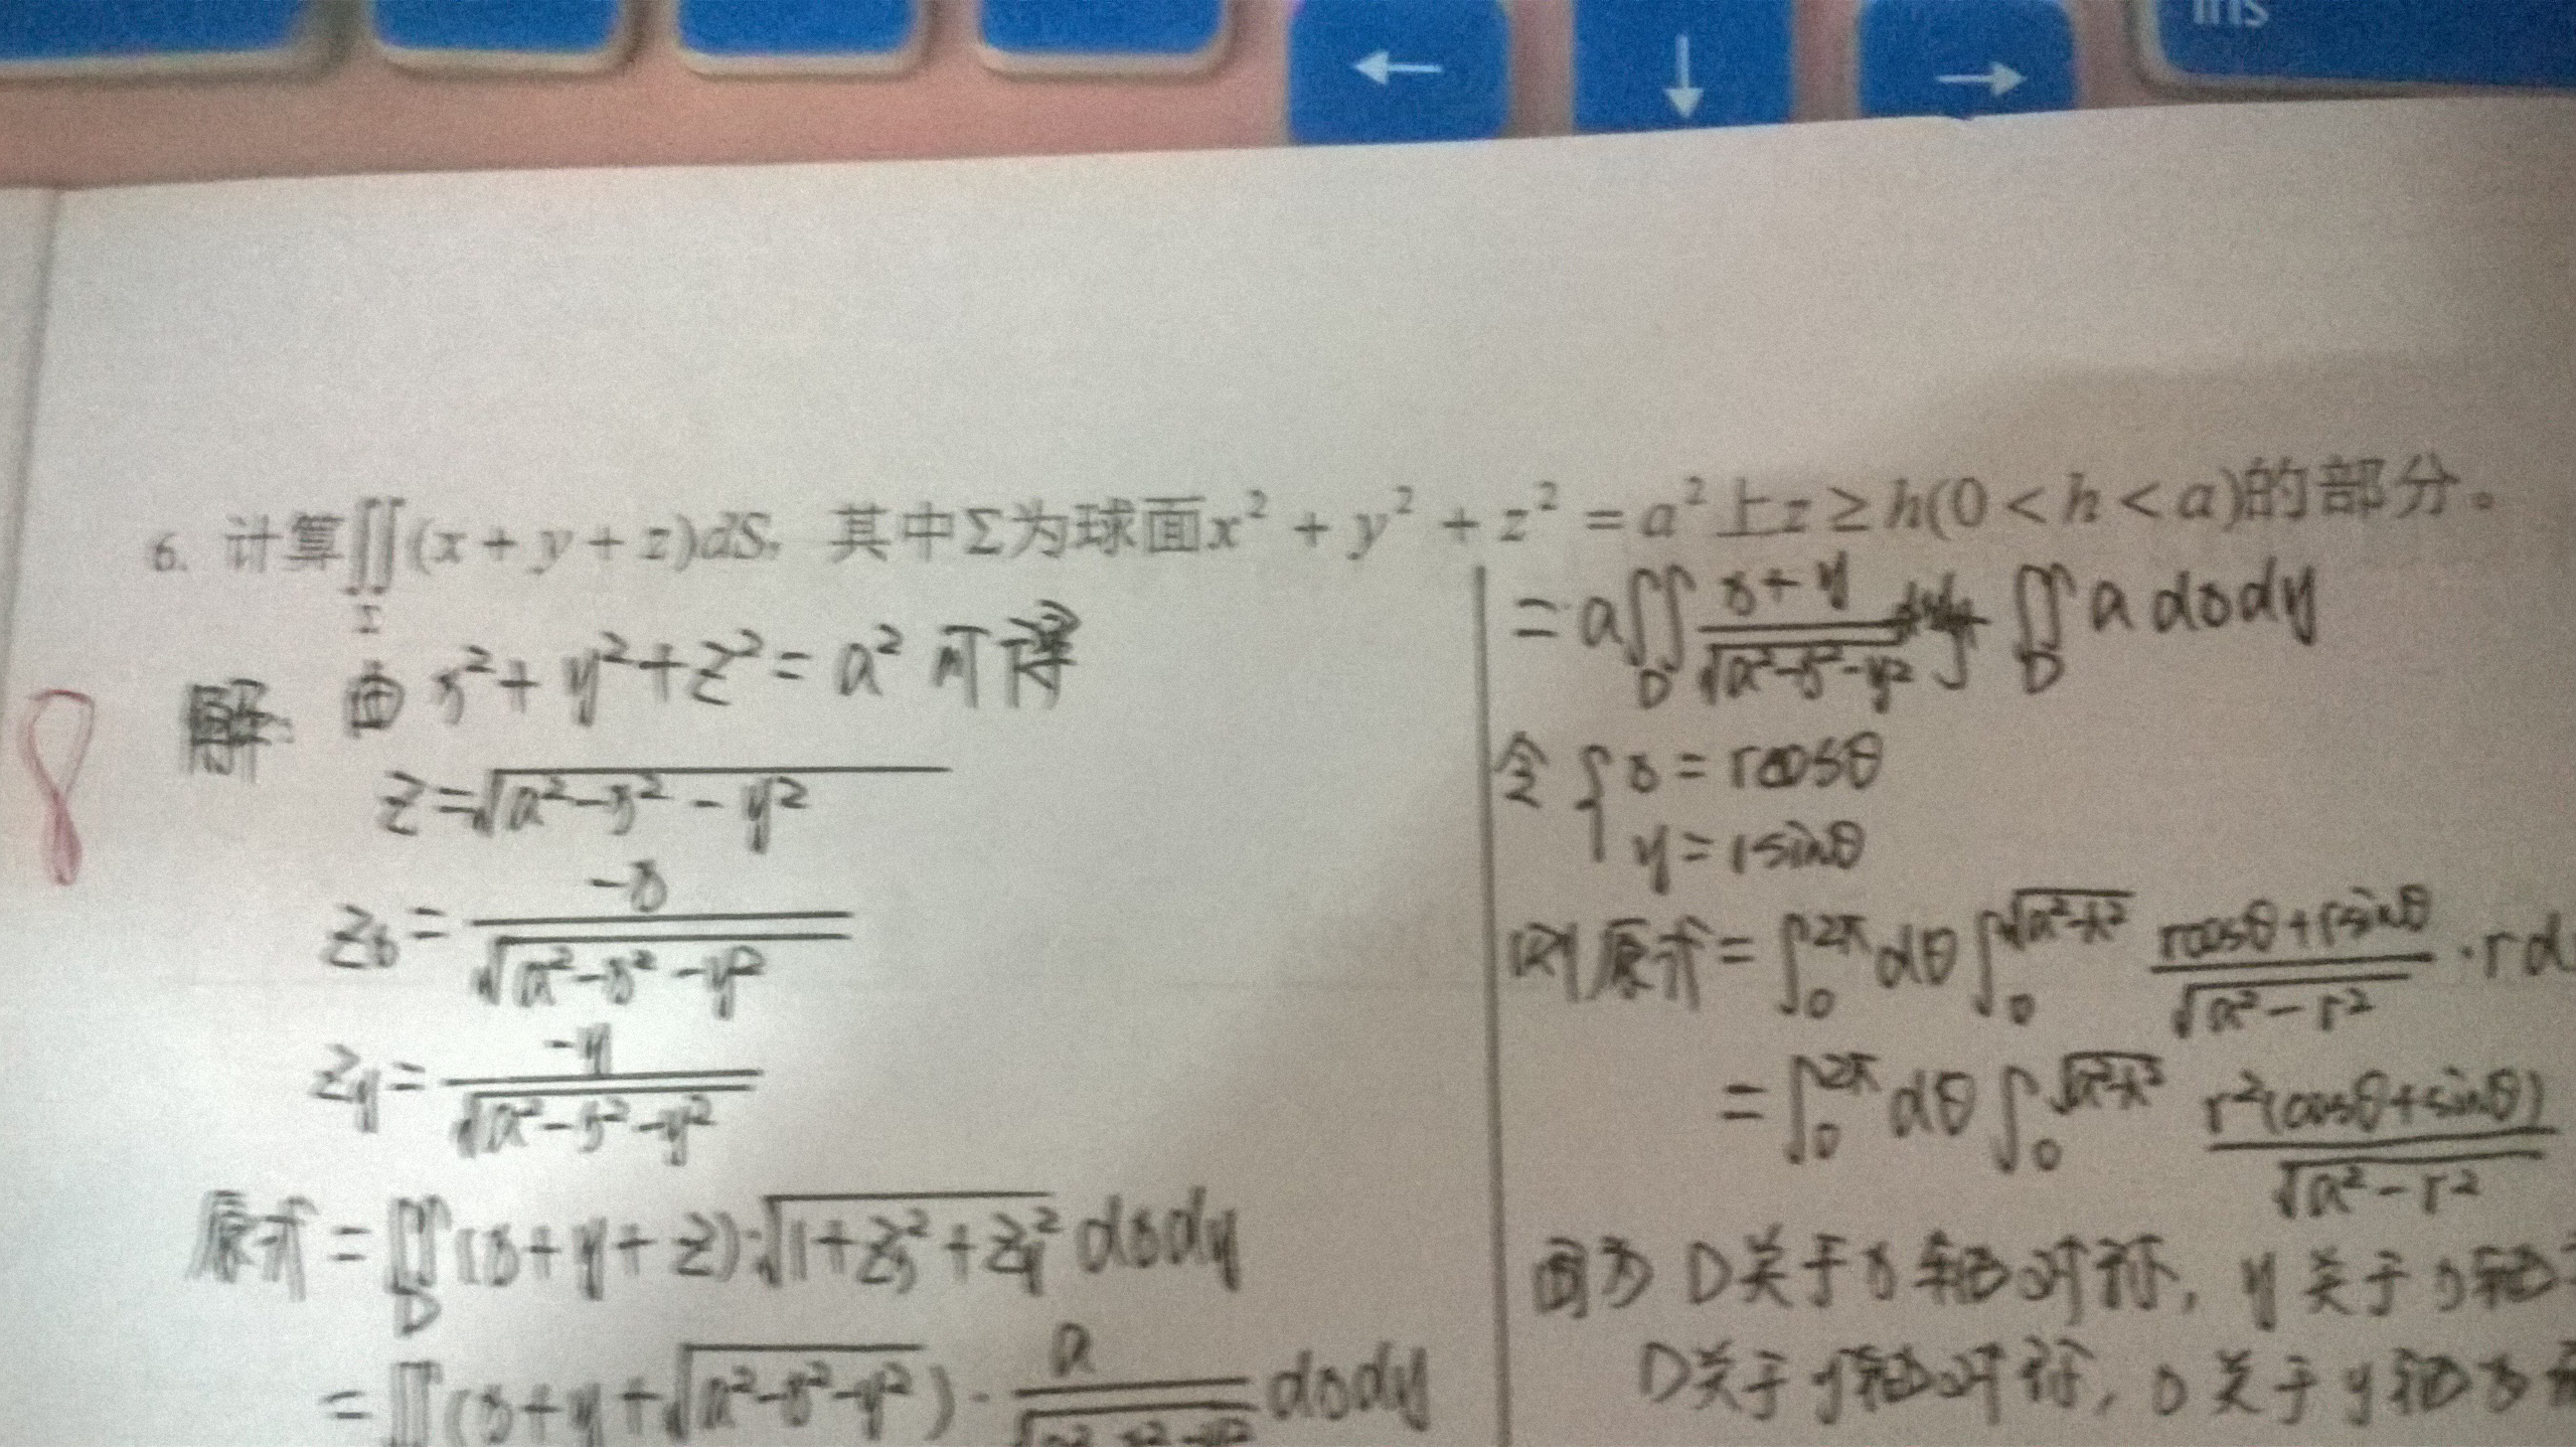 Ins
6. 计算∬(x+y+z)dS, 其中Σ为球面x²+y²+z²=a²上z≥h(0<h<a)的部分。
Σ
8
解: 由 x²+y²+z²=a² 可得
z=√(a²-x²-y²)
zx = -x/√(a²-x²-y²)
zy = -y/√(a²-x²-y²)
原式 = ∬D (x+y+z)·√(1+zx²+zy²) dxdy
= ∬(x+y+√(a²-x²-y²))· a/√(a²-x²-y²) dxdy
= a∬D (x+y)/√(a²-x²-y²) dxdy + ∬D a dxdy
令 { x = rcosθ
y = rsinθ
则原式 = ∫0^2π dθ ∫0^√(a²-h²) (rcosθ+rsinθ)/√(a²-r²) ·rd
= ∫0^2π dθ ∫0^√(a²-h²) r²(cosθ+sinθ)/√(a²-r²)
因为 D关于x轴对称, y关于x轴
D关于y轴对称, x关于y轴为